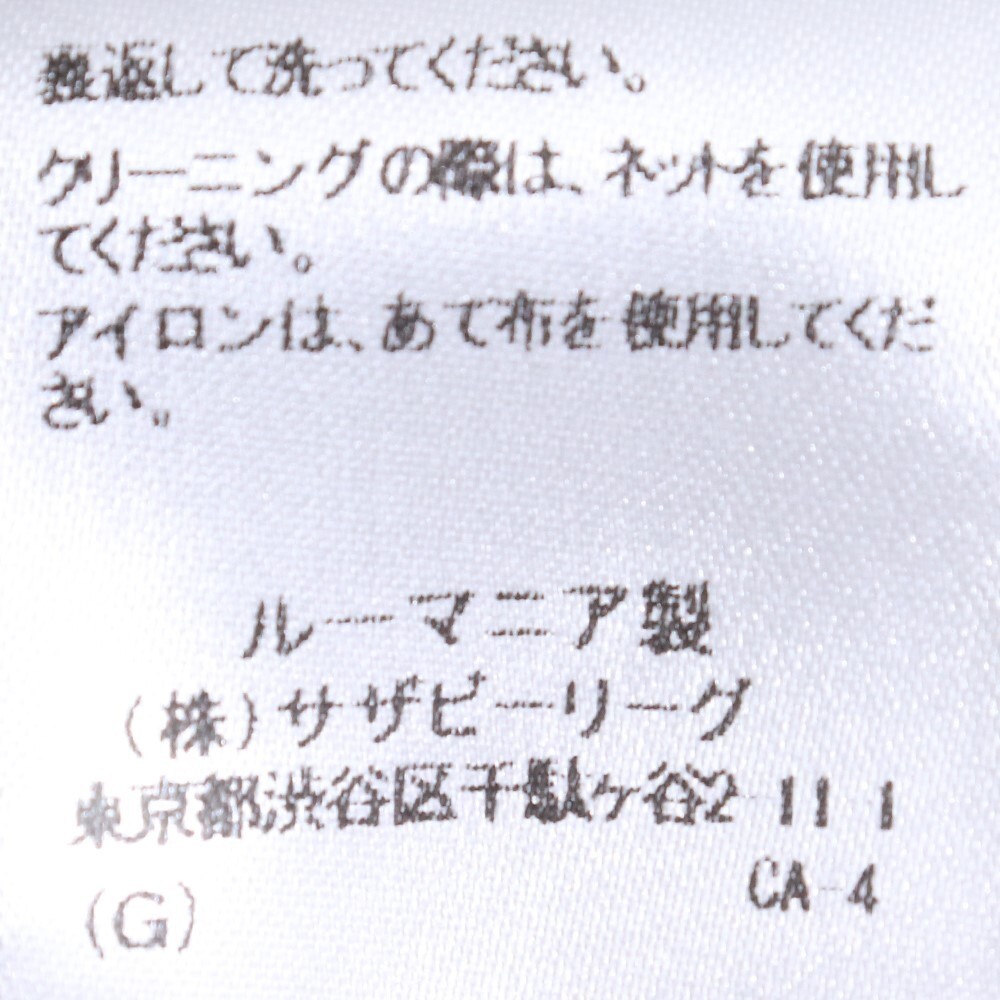 裏返して洗ってください。
クリーニングの際は、ネットを使用し
てください。
アイロンは、あて布を使用してくだ
さい。
ルーマニア製
(株)サザビーリーグ
東京都渋谷区千駄ケ谷2-11-1
CA-4
(G)